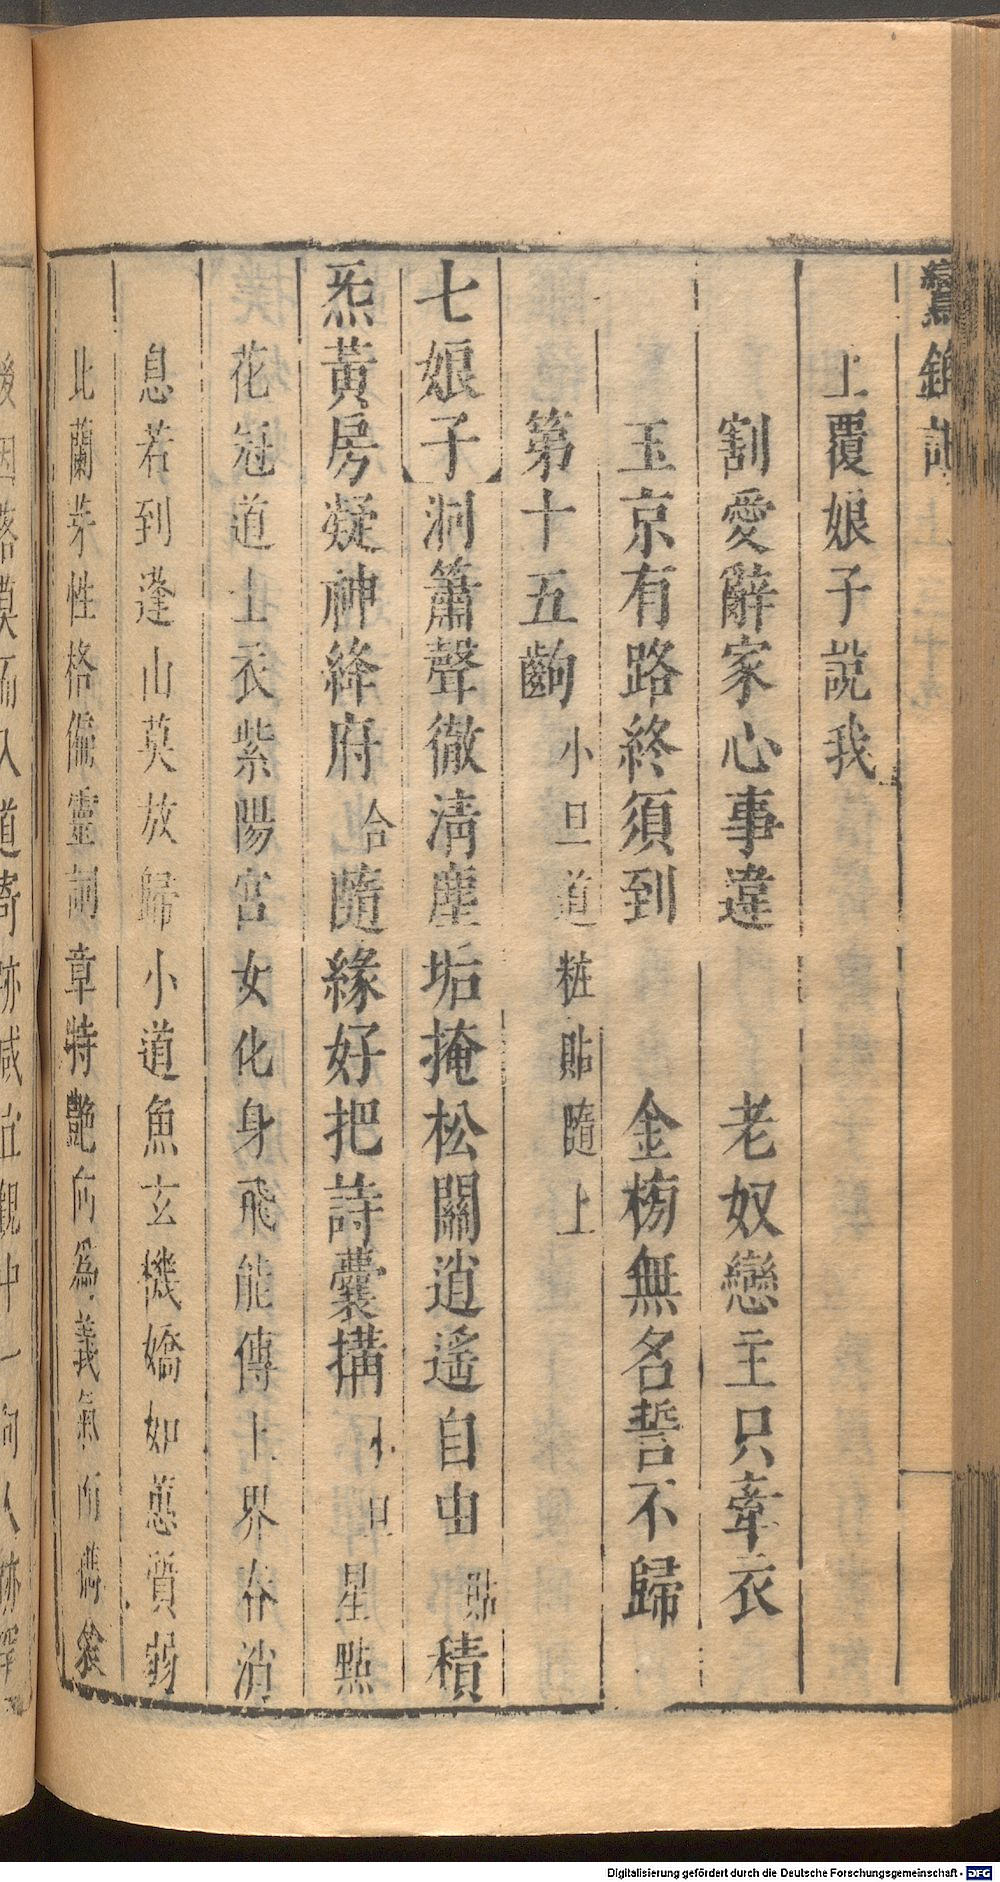 鸞鎞記
上覆娘子說我
割愛辭家心事違　老奴戀主只牽衣
玉京有路終須到　金榜無名誓不歸
第十五齣　小旦道粧貼隨上
七娘子　洞簫聲徹清塵垢掩松關逍遙自由　貼　積
炁黃房凝神絳府　合　隨緣好把詩囊搆　小旦　星點
花冠道士衣紫陽宮女化身飛能傳上界春消
息若到蓬山莫放歸小道魚玄機嬌如蕙質弱
比蘭芽性格偏靈詞章特艷向爲義氣而
Digitalisierung gefördert durch die Deutsche Forschungsgemeinschaft - DFG